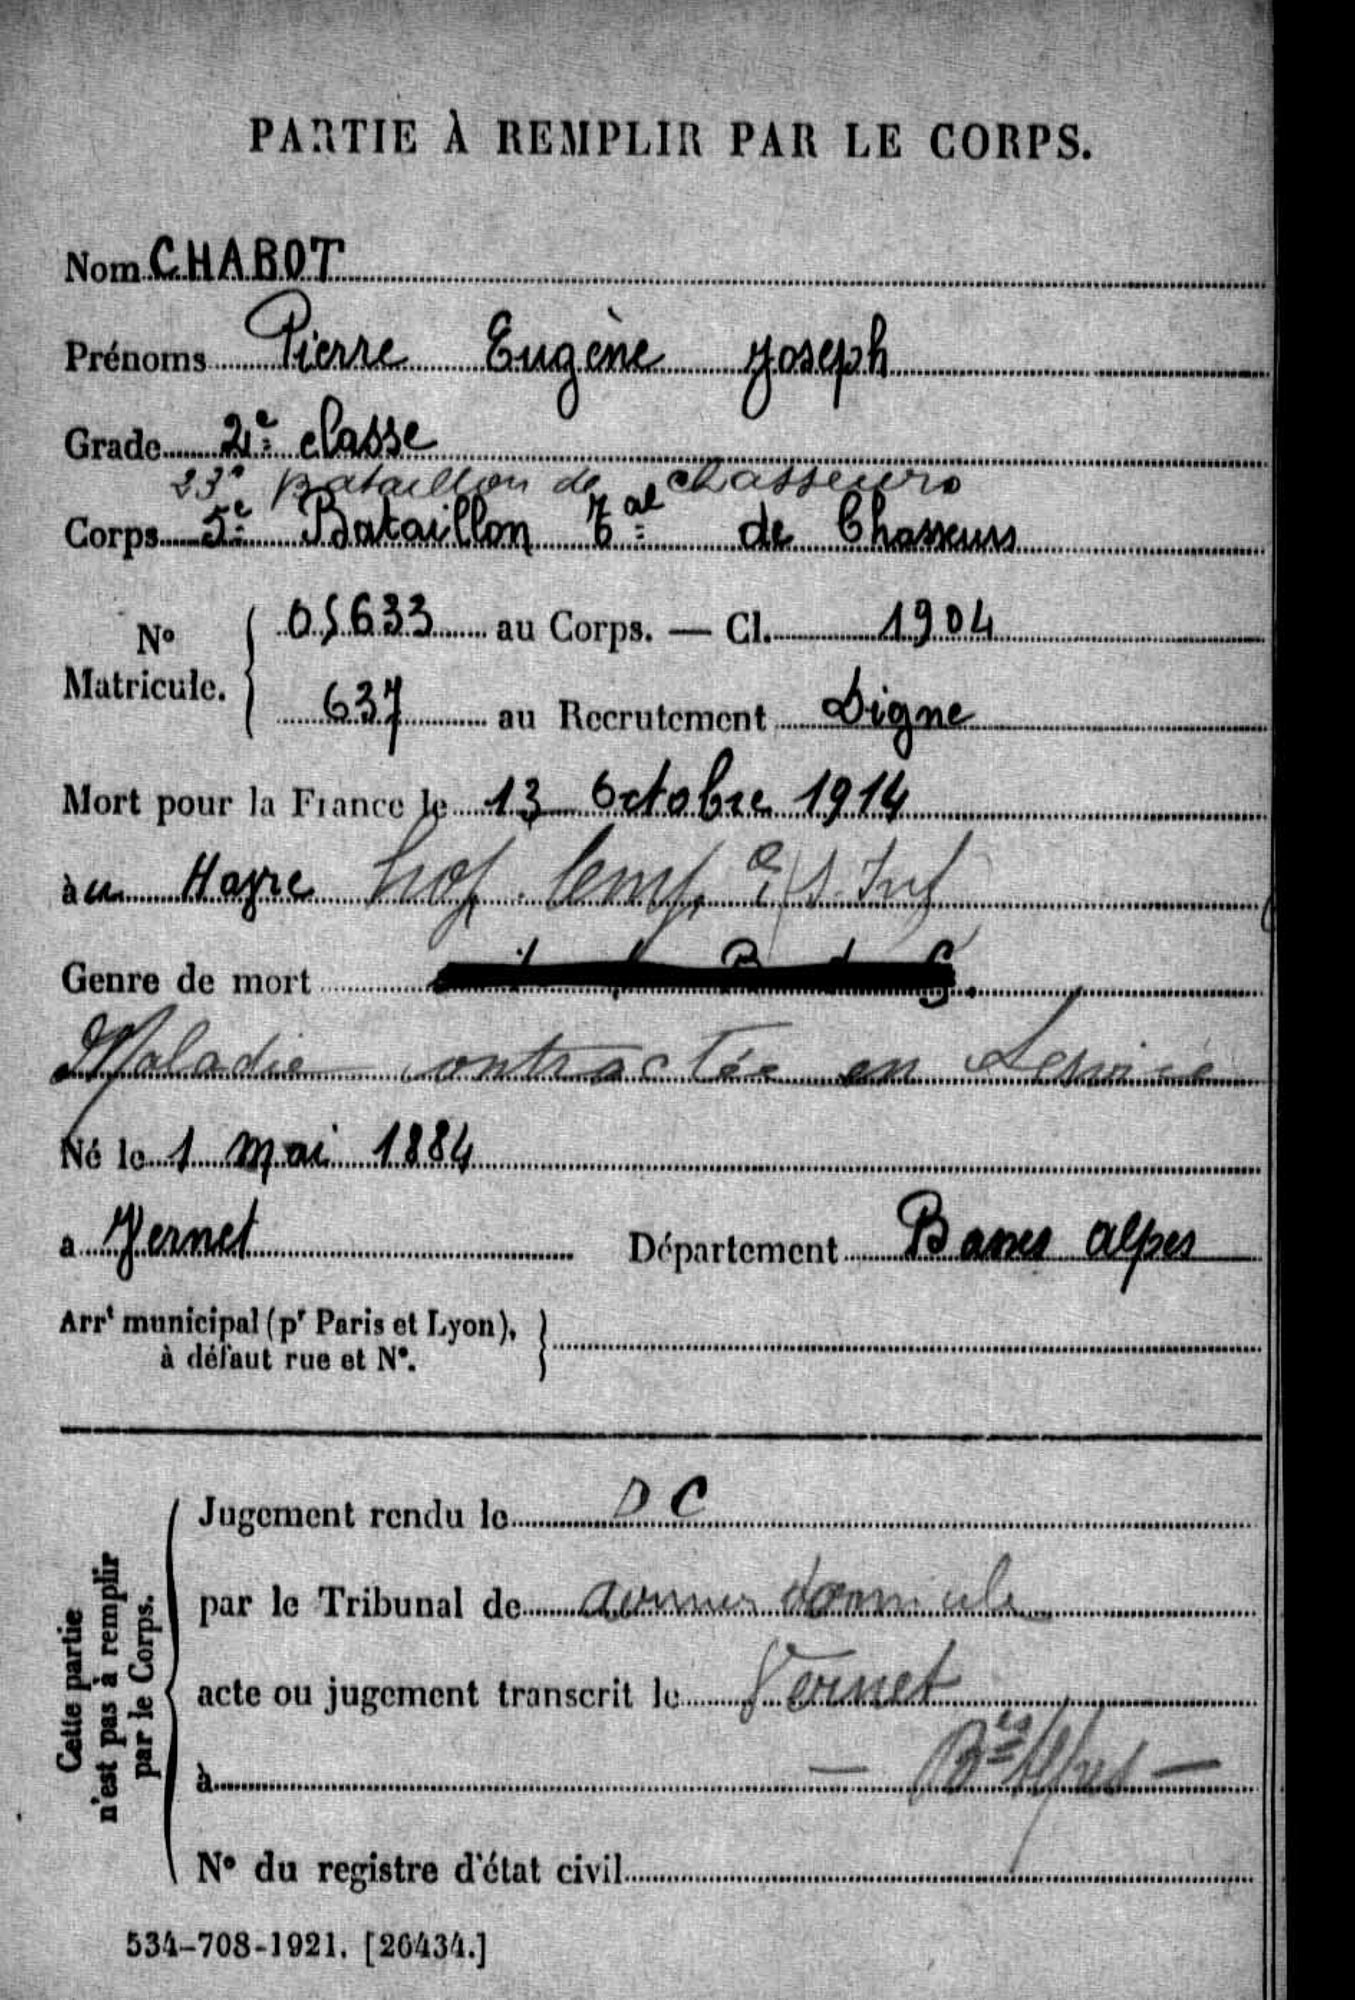 PARTIE À REMPLIR PAR LE CORPS.
Nom CHABOT
Prénoms Pierre Eugène Joseph
Grade 2e classe
23e Bataillon de chasseurs
Corps 5e Bataillon Tal de Chasseurs
No Matricule. { 05633 au Corps. — Cl. 1904
637 au Recrutement Digne
Mort pour la France le 13 Octobre 1914
à u Havre hop. temp.
Genre de mort
Maladie contractée en Service
Né le 1 mai 1884
a Vernet Département Basses alpes
Arrt municipal (pr Paris et Lyon), }
à défaut rue et N°.
Cette partie
n'est pas à remplir
par le Corps.
Jugement rendu le DC
par le Tribunal de domicile
acte ou jugement transcrit le Vernet
à — Bses Alpes —
N° du registre d'état civil
534-708-1921. [26434.]